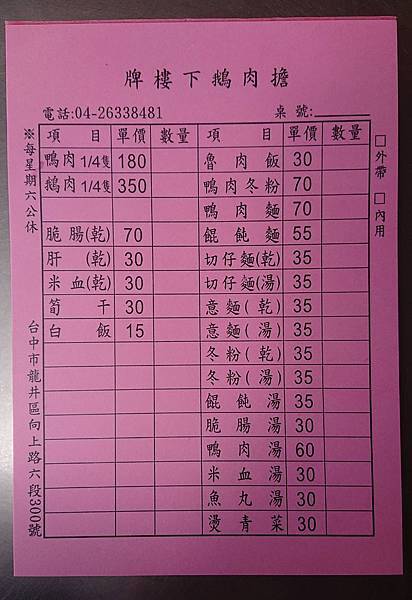 牌樓下鵝肉擔
電話:04-26338481 桌號:
項目 單價 數量 項目 單價 數量
鴨肉1/4隻 180 魯肉飯 30
鵝肉1/4隻 350 鴨肉冬粉 70
鴨肉麵 70
脆腸(乾) 70 餛飩麵 55
肝(乾) 30 切仔麵(乾) 35
米血(乾) 30 切仔麵(湯) 35
筍干 30 意麵(乾) 35
白飯 15 意麵(湯) 35
冬粉(乾) 35
冬粉(湯) 35
餛飩湯 35
脆腸湯 30
鴨肉湯 60
米血湯 30
魚丸湯 30
燙青菜 30
□外帶 □內用
※每星期六公休
台中市龍井區向上路六段300號